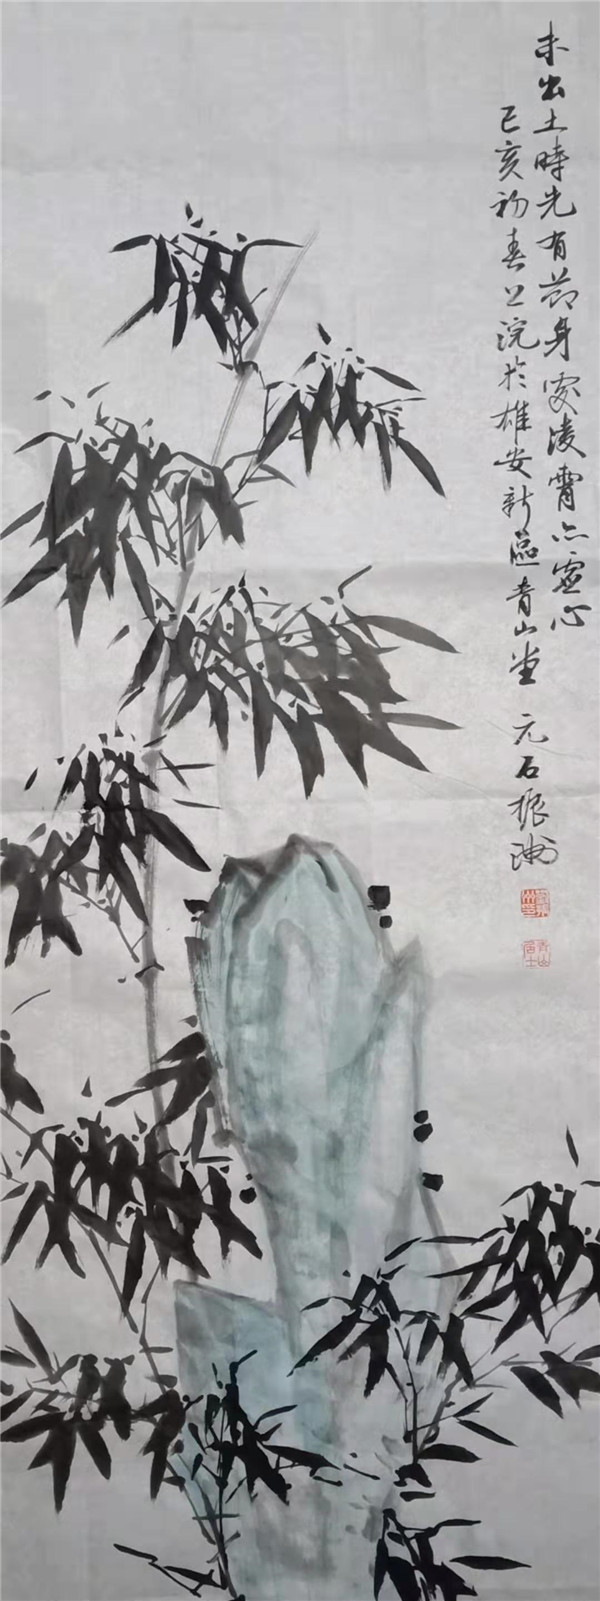 未出土時先有節身處凌霄亦虛心
己亥初春上浣於雄安新區青山堂 元石振洲
青山居士